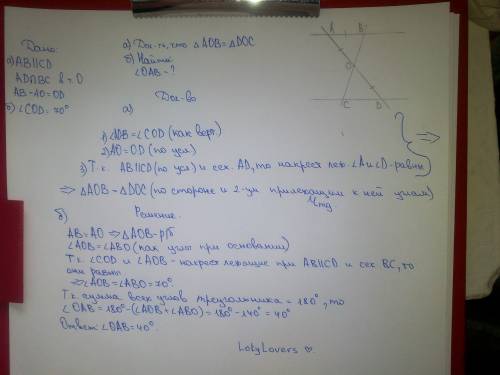 Дано:
а) AB||CD
AD∩BC в т. O
AB=AO=OD
б) ∠COD=70°
а) Док-ть, что △AOB=△DOC
б) Найти
∠OAB-?
A B
O
C D
Док-во
а)
1) ∠AOB=∠COD (как верт.)
2) AO=OD (по усл)
3) Т.к. AB||CD (по усл) и сек. AD, то накрест леж. ∠A и ∠D-равны
⇒ △AOB=△DOC (по стороне и 2-ум прилежащим к ней углам)
Ч.тд.
б) Решение.
AB=AO ⇒ △AOB-р/б
∠AOB=∠ABO (как углы при основании)
Т.к ∠COD и ∠AOB-накрест лежащие при AB||CD и сек. BC, то
они равны
⇒ ∠AOB=∠ABO=70°.
Т.к. сумма всех углов треугольника=180°, то
∠OAB=180°-(∠AOB+∠ABO)=180°-140°=40°
Ответ: ∠OAB=40°.
LotyLovers